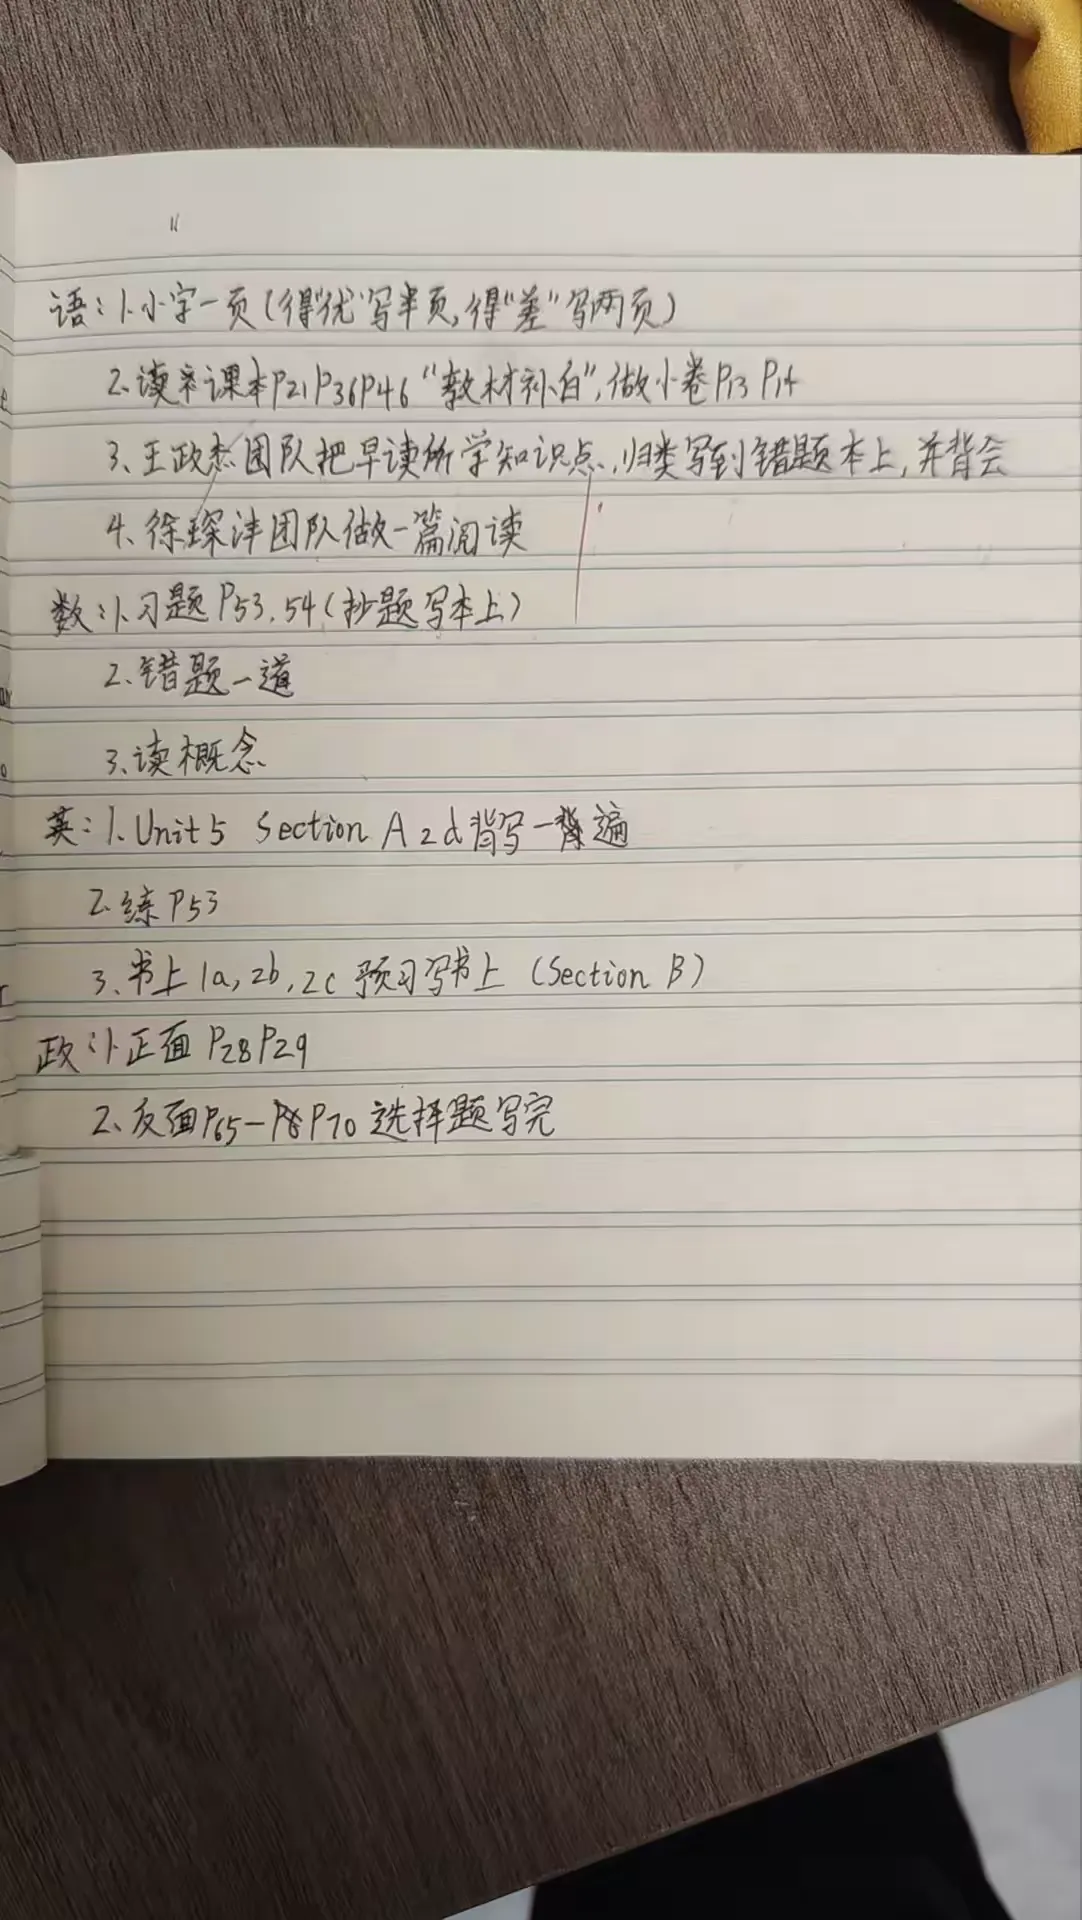 语：1.小字一页（得“优”写半页，得“差”写两页）
2.读课本P21P36P46“教材补白”，做小卷P13 P14
3、王政杰团队把早读所学知识点，归类写到错题本上，并背会
4、徐琛沣团队做一篇阅读
数：1、习题P53.54（抄题写本上）
2、错题一道
3、读概念
英：1、Unit5 Section A 2d背写一遍
2.练P53
3、书上1a，2b，2c预习写书上（Section B）
政：1、正面P28P29
2、反面P65-P70选择题写完